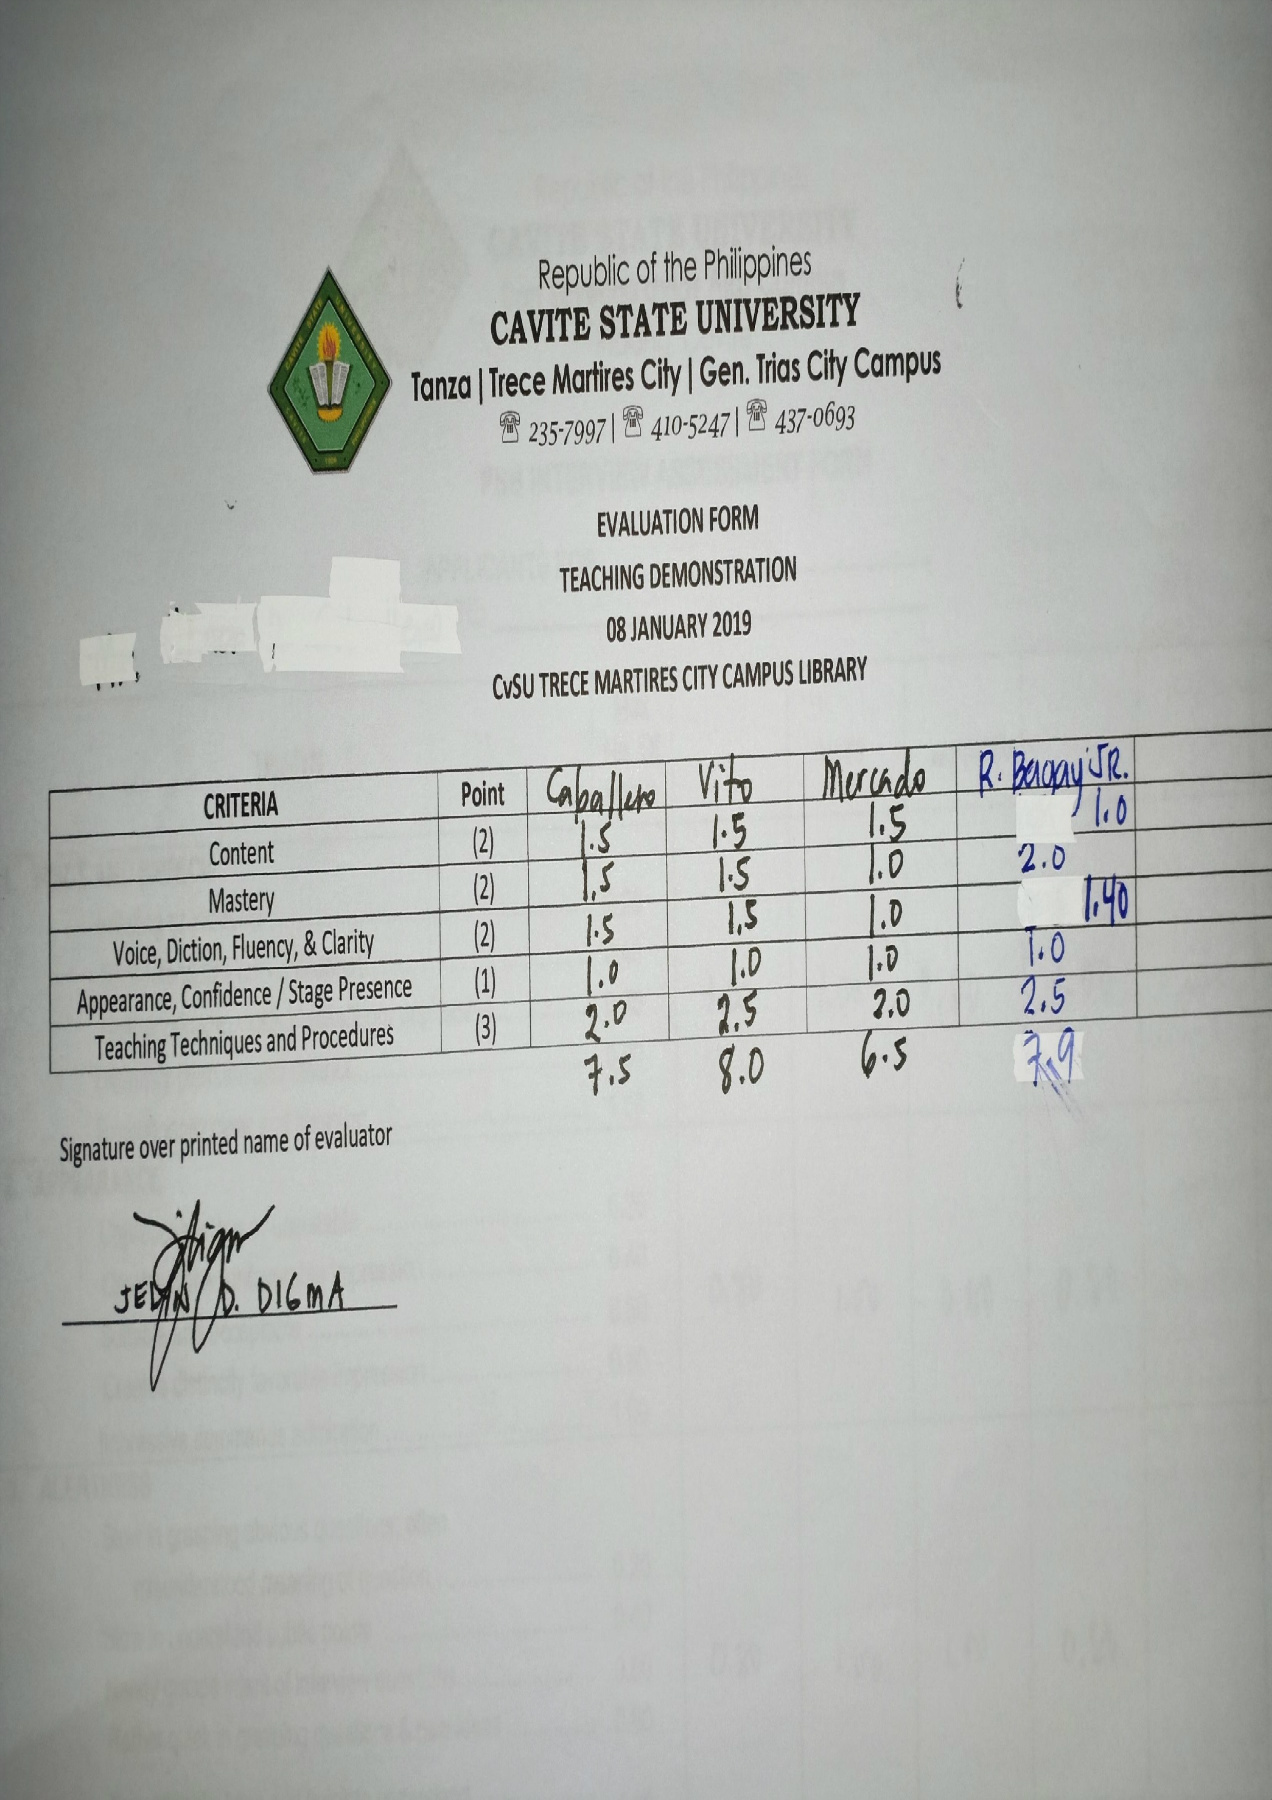 Republic of the Philippines
CAVITE STATE UNIVERSITY
Tanza | Trece Martires City | Gen. Trias City Campus
☎ 235-7997 | ☎ 410-5247 | ☎ 437-0693
EVALUATION FORM
TEACHING DEMONSTRATION
08 JANUARY 2019
CvSU TRECE MARTIRES CITY CAMPUS LIBRARY
CRITERIA Point Caballero Vito Mercado R. JR.
Content (2) 1.5 1.5 1.5 1.0
Mastery (2) 1.5 1.5 1.0 2.0
Voice, Diction, Fluency, & Clarity (2) 1.5 1.5 1.0 1.40
Appearance, Confidence / Stage Presence (1) 1.0 1.0 1.0 1.0
Teaching Techniques and Procedures (3) 2.0 2.5 2.0 2.5
7.5 8.0 6.5 7.9
Signature over printed name of evaluator
D. DIGMA